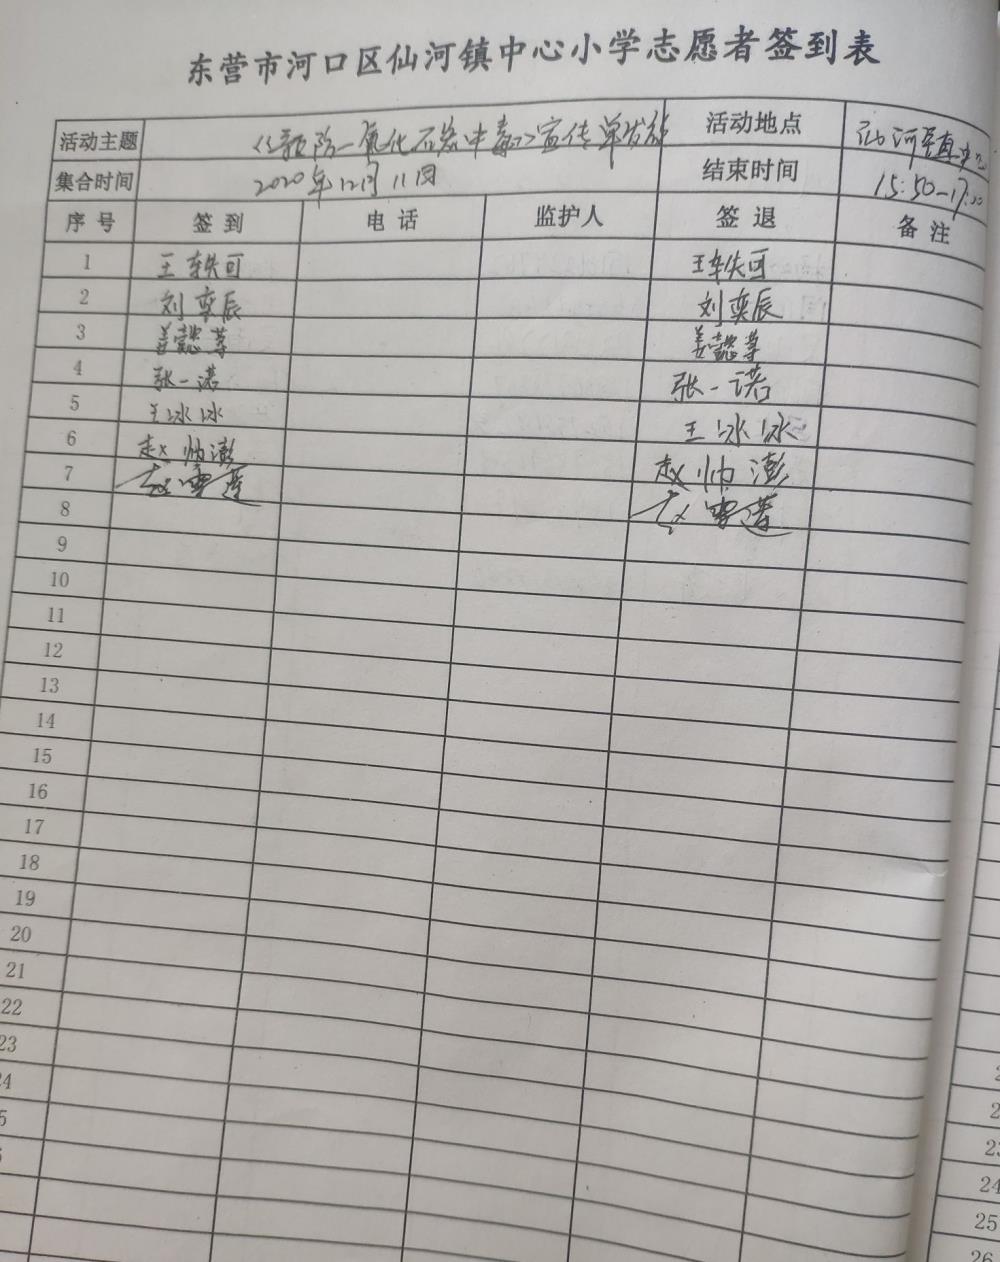 东营市河口区仙河镇中心小学志愿者签到表
活动主题 《预防一氧化碳中毒》宣传单发放 活动地点 仙河镇中心
集合时间 2020年12月11日 结束时间 15:50-17:20
序号 签到 电话 监护人 签退 备注
1 王轶可 王轶可
2 刘奕辰 刘奕辰
3 姜懿 姜懿
4 张一诺 张一诺
5 王冰冰 王冰冰
6 赵帅澎 赵帅澎
7 赵雪莲 赵雪莲
8
9
10
11
12
13
14
15
16
17
18
19
20
21
22
23
24
25
26